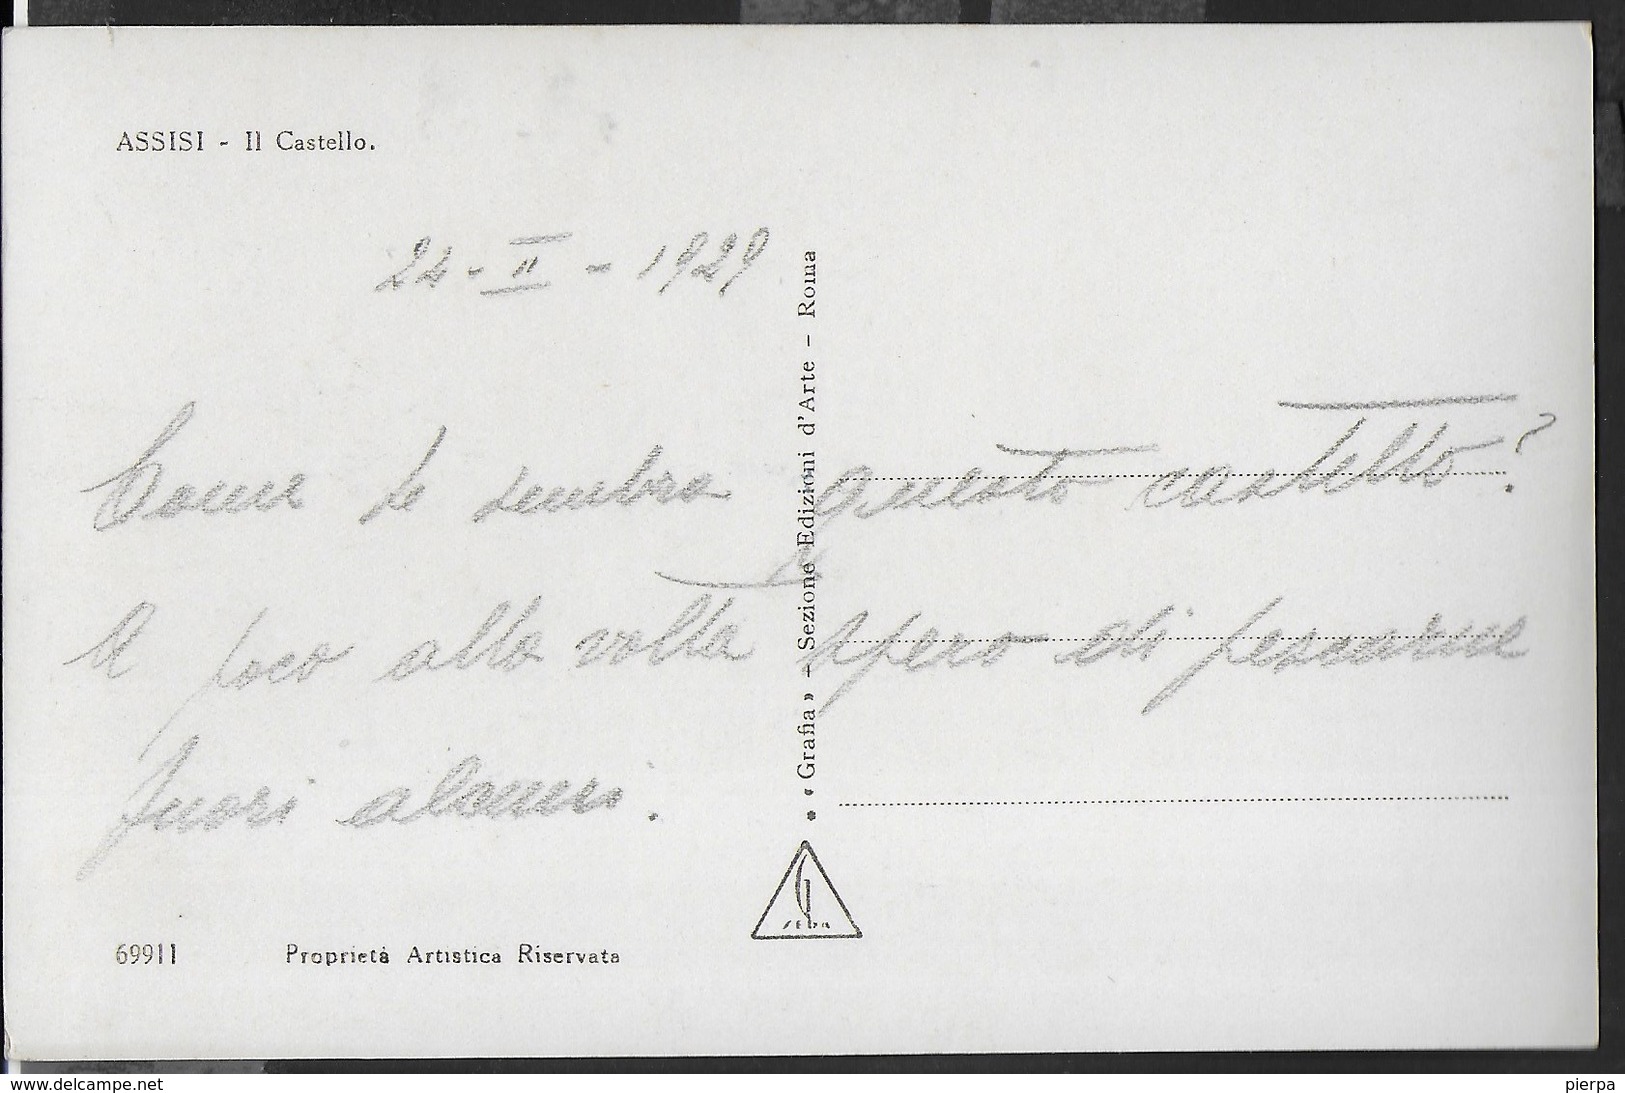 ASSISI - Il Castello.
24 - II - 1929
Come te sembra questo castello?
A poco alla volta spero di pescarne
fuori alcuni.
« Grafia » - Sezione Edizioni d'Arte - Roma
SEDA
69911 Proprietà Artistica Riservata
www.delcampe.net
pierpa